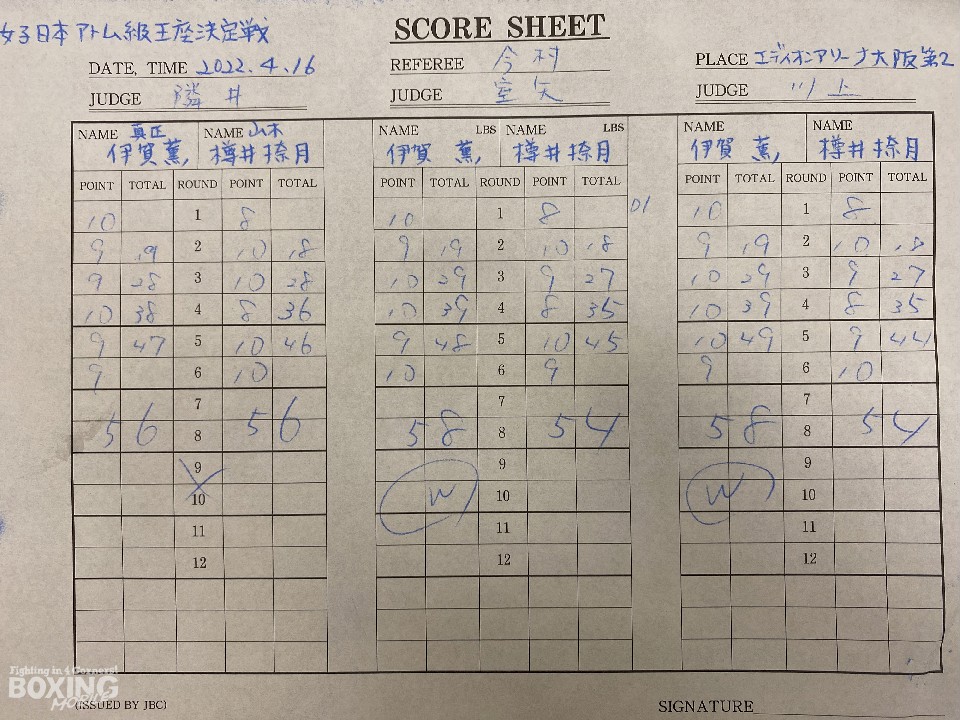 SCORE SHEET
女子日本アトム級王座決定戦
DATE, TIME 2022.4.16
REFEREE 今村
PLACE エディオンアリーナ大阪第2
JUDGE 隣井
JUDGE 室矢
JUDGE 川上
NAME 真正 NAME 山木
伊賀 薫 樽井捺月
NAME LBS NAME LBS
伊賀 薫 樽井捺月
NAME NAME
伊賀 薫 樽井捺月
POINT TOTAL ROUND POINT TOTAL POINT TOTAL ROUND POINT TOTAL POINT TOTAL ROUND POINT TOTAL
10 1 8 10 1 8 D1 10 1 8
9 19 2 10 18 9 19 2 10 18 9 19 2 10 18
9 28 3 10 28 10 29 3 9 27 10 29 3 9 27
10 38 4 8 36 10 39 4 8 35 10 39 4 8 35
9 47 5 10 46 9 48 5 10 45 10 49 5 9 44
9 6 10 10 6 9 9 6 10
7 7 7
56 8 56 58 8 54 58 8 54
9 9 9
10 W 10 W 10
11 11 11
12 12 12
Fighting in 4 Corners!
BOXING
MOBILE
(ISSUED BY JBC)
SIGNATURE